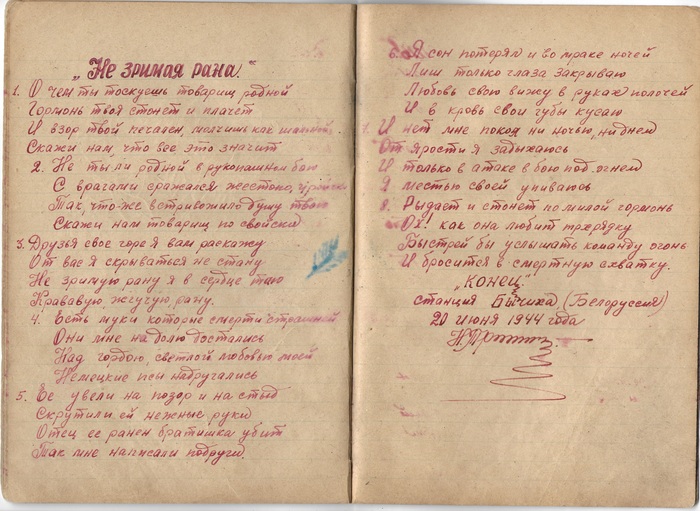 „Не зримая рана."
1. О чем ты тоскуешь товарищ родной
Гормонь твоя стонет и плачет
И взор твой печален, молчишь как шальной
Скажи нам что все это значит
2. Не ты ли родной в рукопашном бою
С врагами сражался жестоко,
Так, что-же встривожило душу твою
Скажи нам товарищ по свойски
3. Друзья свое горе я вам раскажу
От вас я скрываться не стану
Не зримую рану я в сердце таю
Крававую, жгучую рану.
4. Есть муки которые смерти страшней
Они мне на долю достались
Над гордою, светлой любовью моей
Немецкие псы надругались
5. Ее увели на позор и на стыд
Скрутили ей нежные руки
Отец ее ранен братишка убит
Так мне написали подруги.
6. Я сон потерял и во мраке ночей
Лиш только глаза закрываю
Любовь свою вижу в руках полочей
И в кровь свои губы кусаю
7. И нет мне покоя ни ночью, ни днем
От ярости я задыхаюсь
И только в атаке в бою под огнем
Я местью своей упиваюсь
8. Рыдает и стонет по милой гормонь
Ох! как она любит трехрядку
Быстрей бы услышать команду огонь
И бросится в смертную схватку.
„Конец"
станция Бычиха (Белоруссия)
20 июня 1944 года